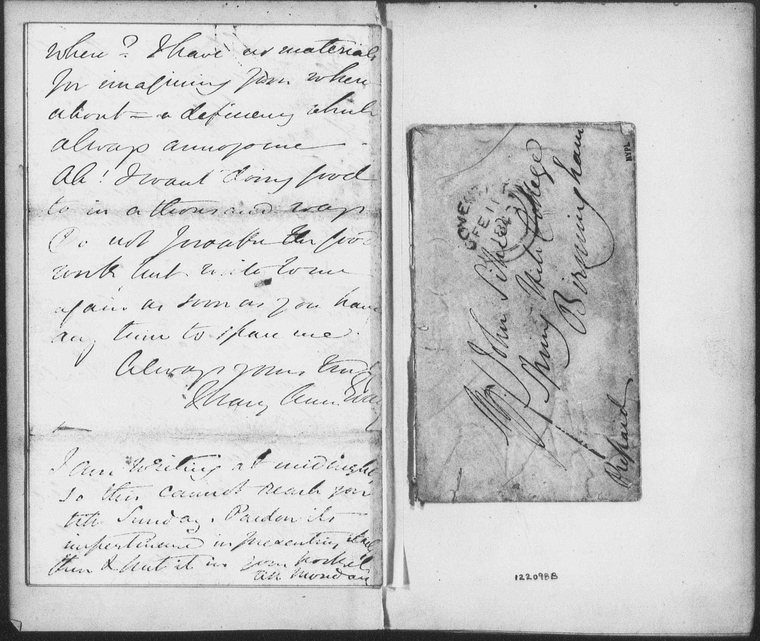 when? I have no materials
for imagining your where
about = a deficiency which
always annoys me -
Ah! I want doing good
to in a thousand ways
Do not forsake the good
work but write to me
again as soon as you have
any time to spare me.
Always yours truly
Mary Ann Eva
I am writing at midnight,
so this cannot reach you
till Sunday. Pardon its
impertinence in presenting itself
then & put it in your pocket
till Monday
COVENT
FE 11
Mr John Sib
Spring Hill College
Birmingham
Prepaid
NYPL
122098B